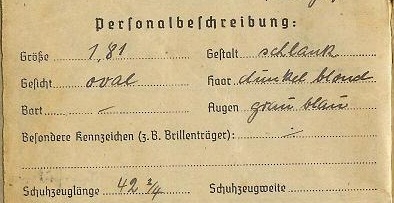 Personalbeschreibung:
Größe 1,81 Gestalt schlank
Gesicht oval Haar dunkelblond
Bart – Augen grau blau
Besondere Kennzeichen (z.B. Brillenträger):
Schuhzeuglänge 42 3/4 Schuhzeugweite